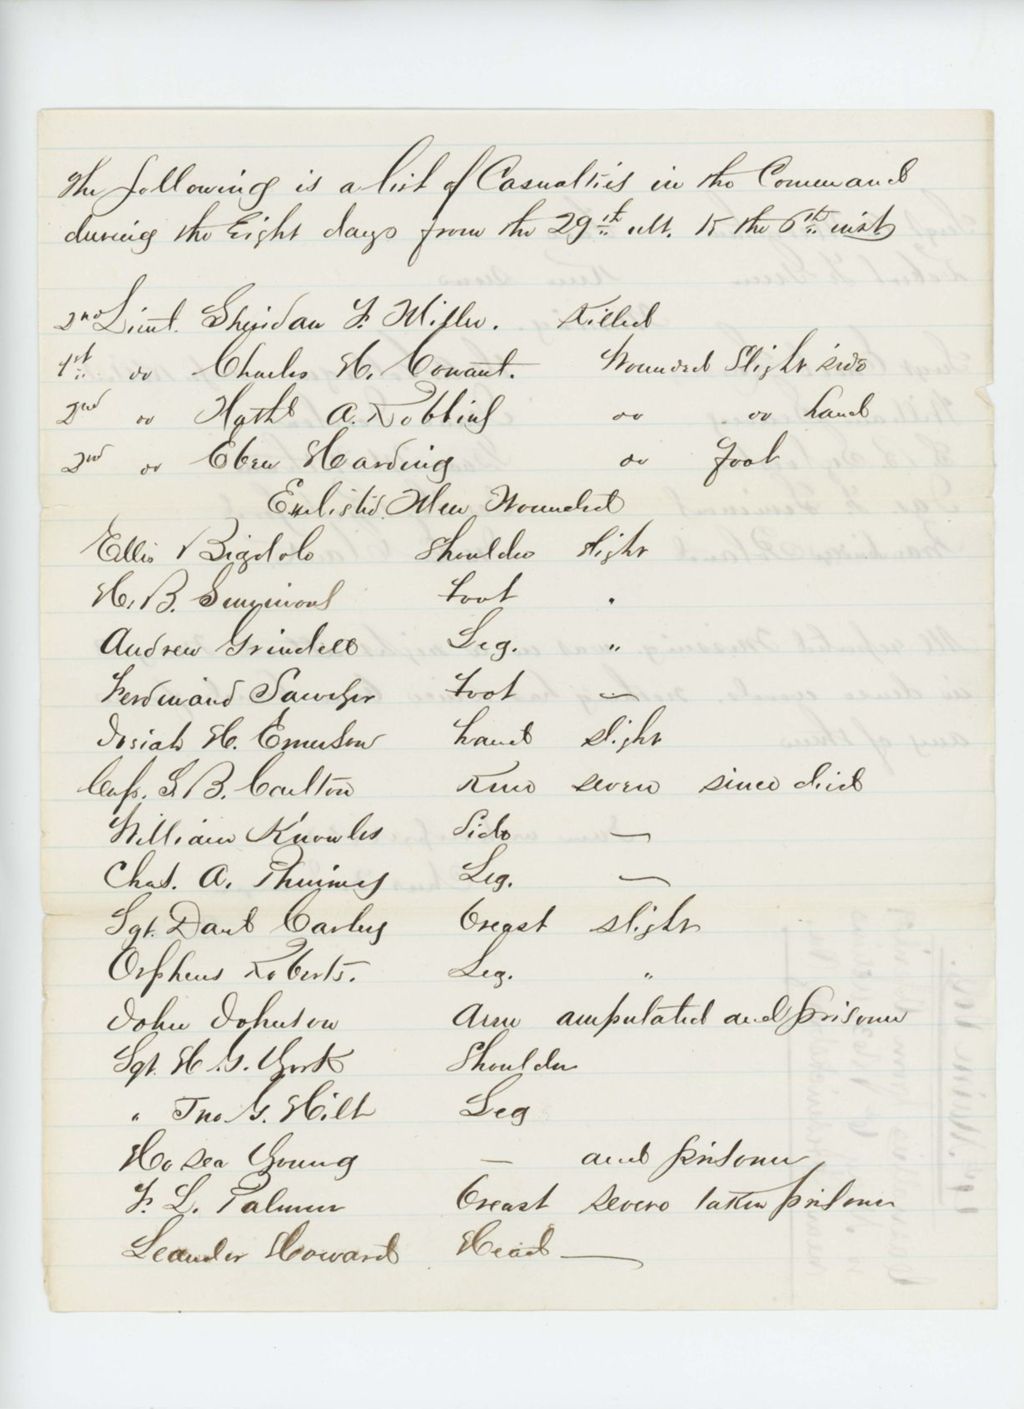 The following is a list of Casualties in the Command
during the Eight days from the 29th ult. to the 6th inst
2nd Lieut. Sheridan F. Miller. Killed
1st do Charles H. Conant. Wounded Slight side
2nd do Nathl A. Robbins do do hand
2nd do Eben Harding do foot
Enlisted Men Wounded
Ellis Bigdolo Shoulder slight
H. B. Simmons foot "
Andrew Grindell Leg. "
Ferdinand Sawyer foot —
Josiah H. Emerson hand slight
Corp. G. B. Carlton Knee severe since died
William Knowles Side —
Chas. A. Phinney Leg. —
Sgt. Danl Carley breast slight
Orpheus Roberts. Leg. "
John Johnson Arm amputated and prisoner
Sgt. H. G. York Shoulder
" Jno. G. Hilt Leg
Hosea Young — and prisoner
F. L. Palmer breast severe taken prisoner
Leander Howard Head —